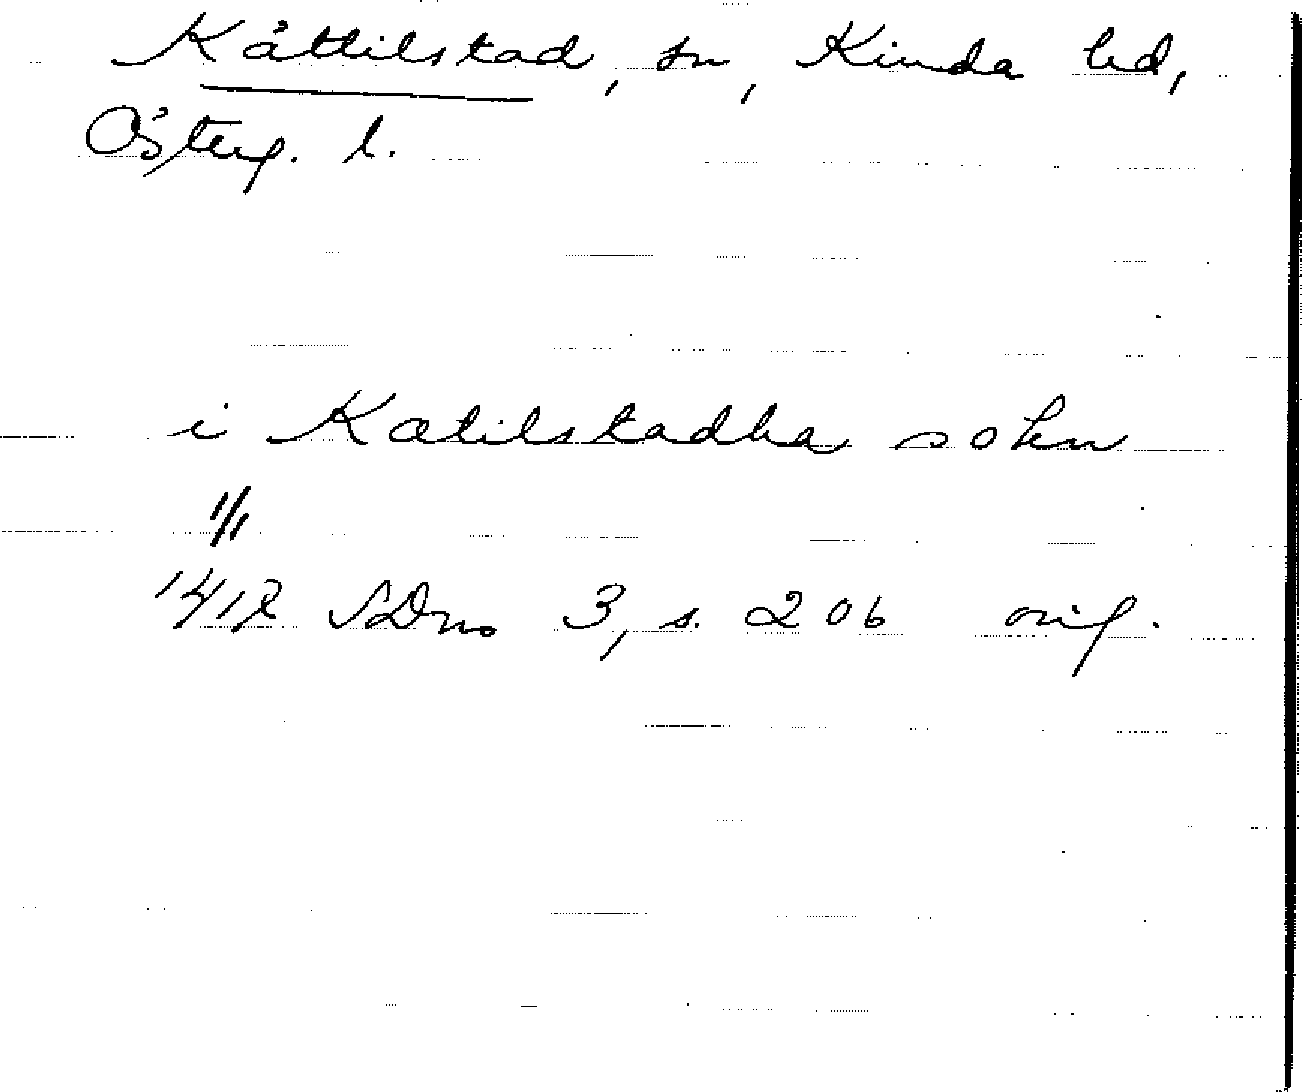 Kättilstad, sn, Kinda hd,
Österg. l.
i Kætilstadha sokn
1/1
1418 SDns 3, s. 206 orig.